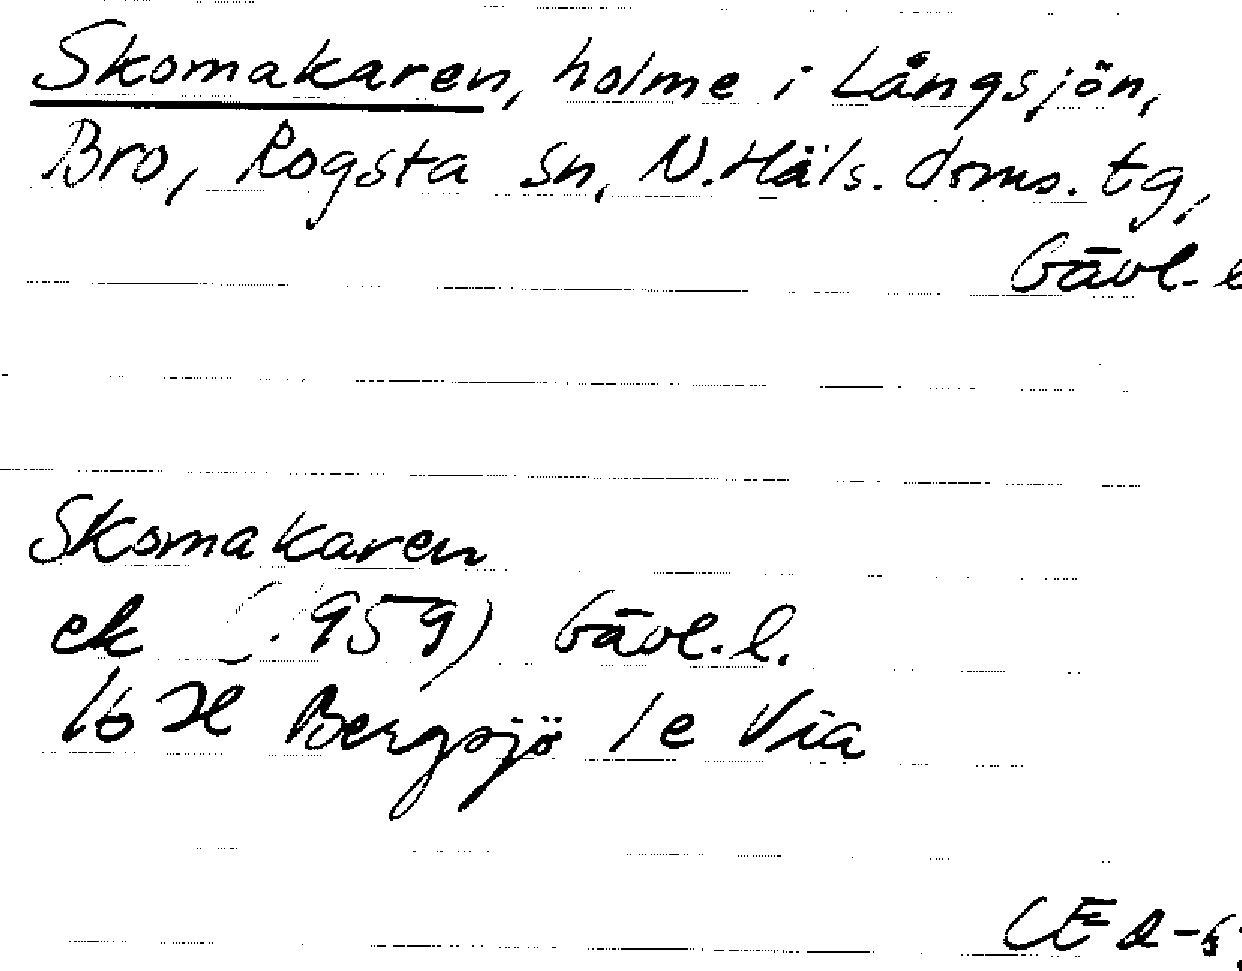 Skomakaren, holme i Långsjön,
Bro, Rogsta sn, N.Häls. doms. tg,
Gävl.
Skomakaren
ek (1959) Gävl.l.
16 H Bergsjö 1e Via